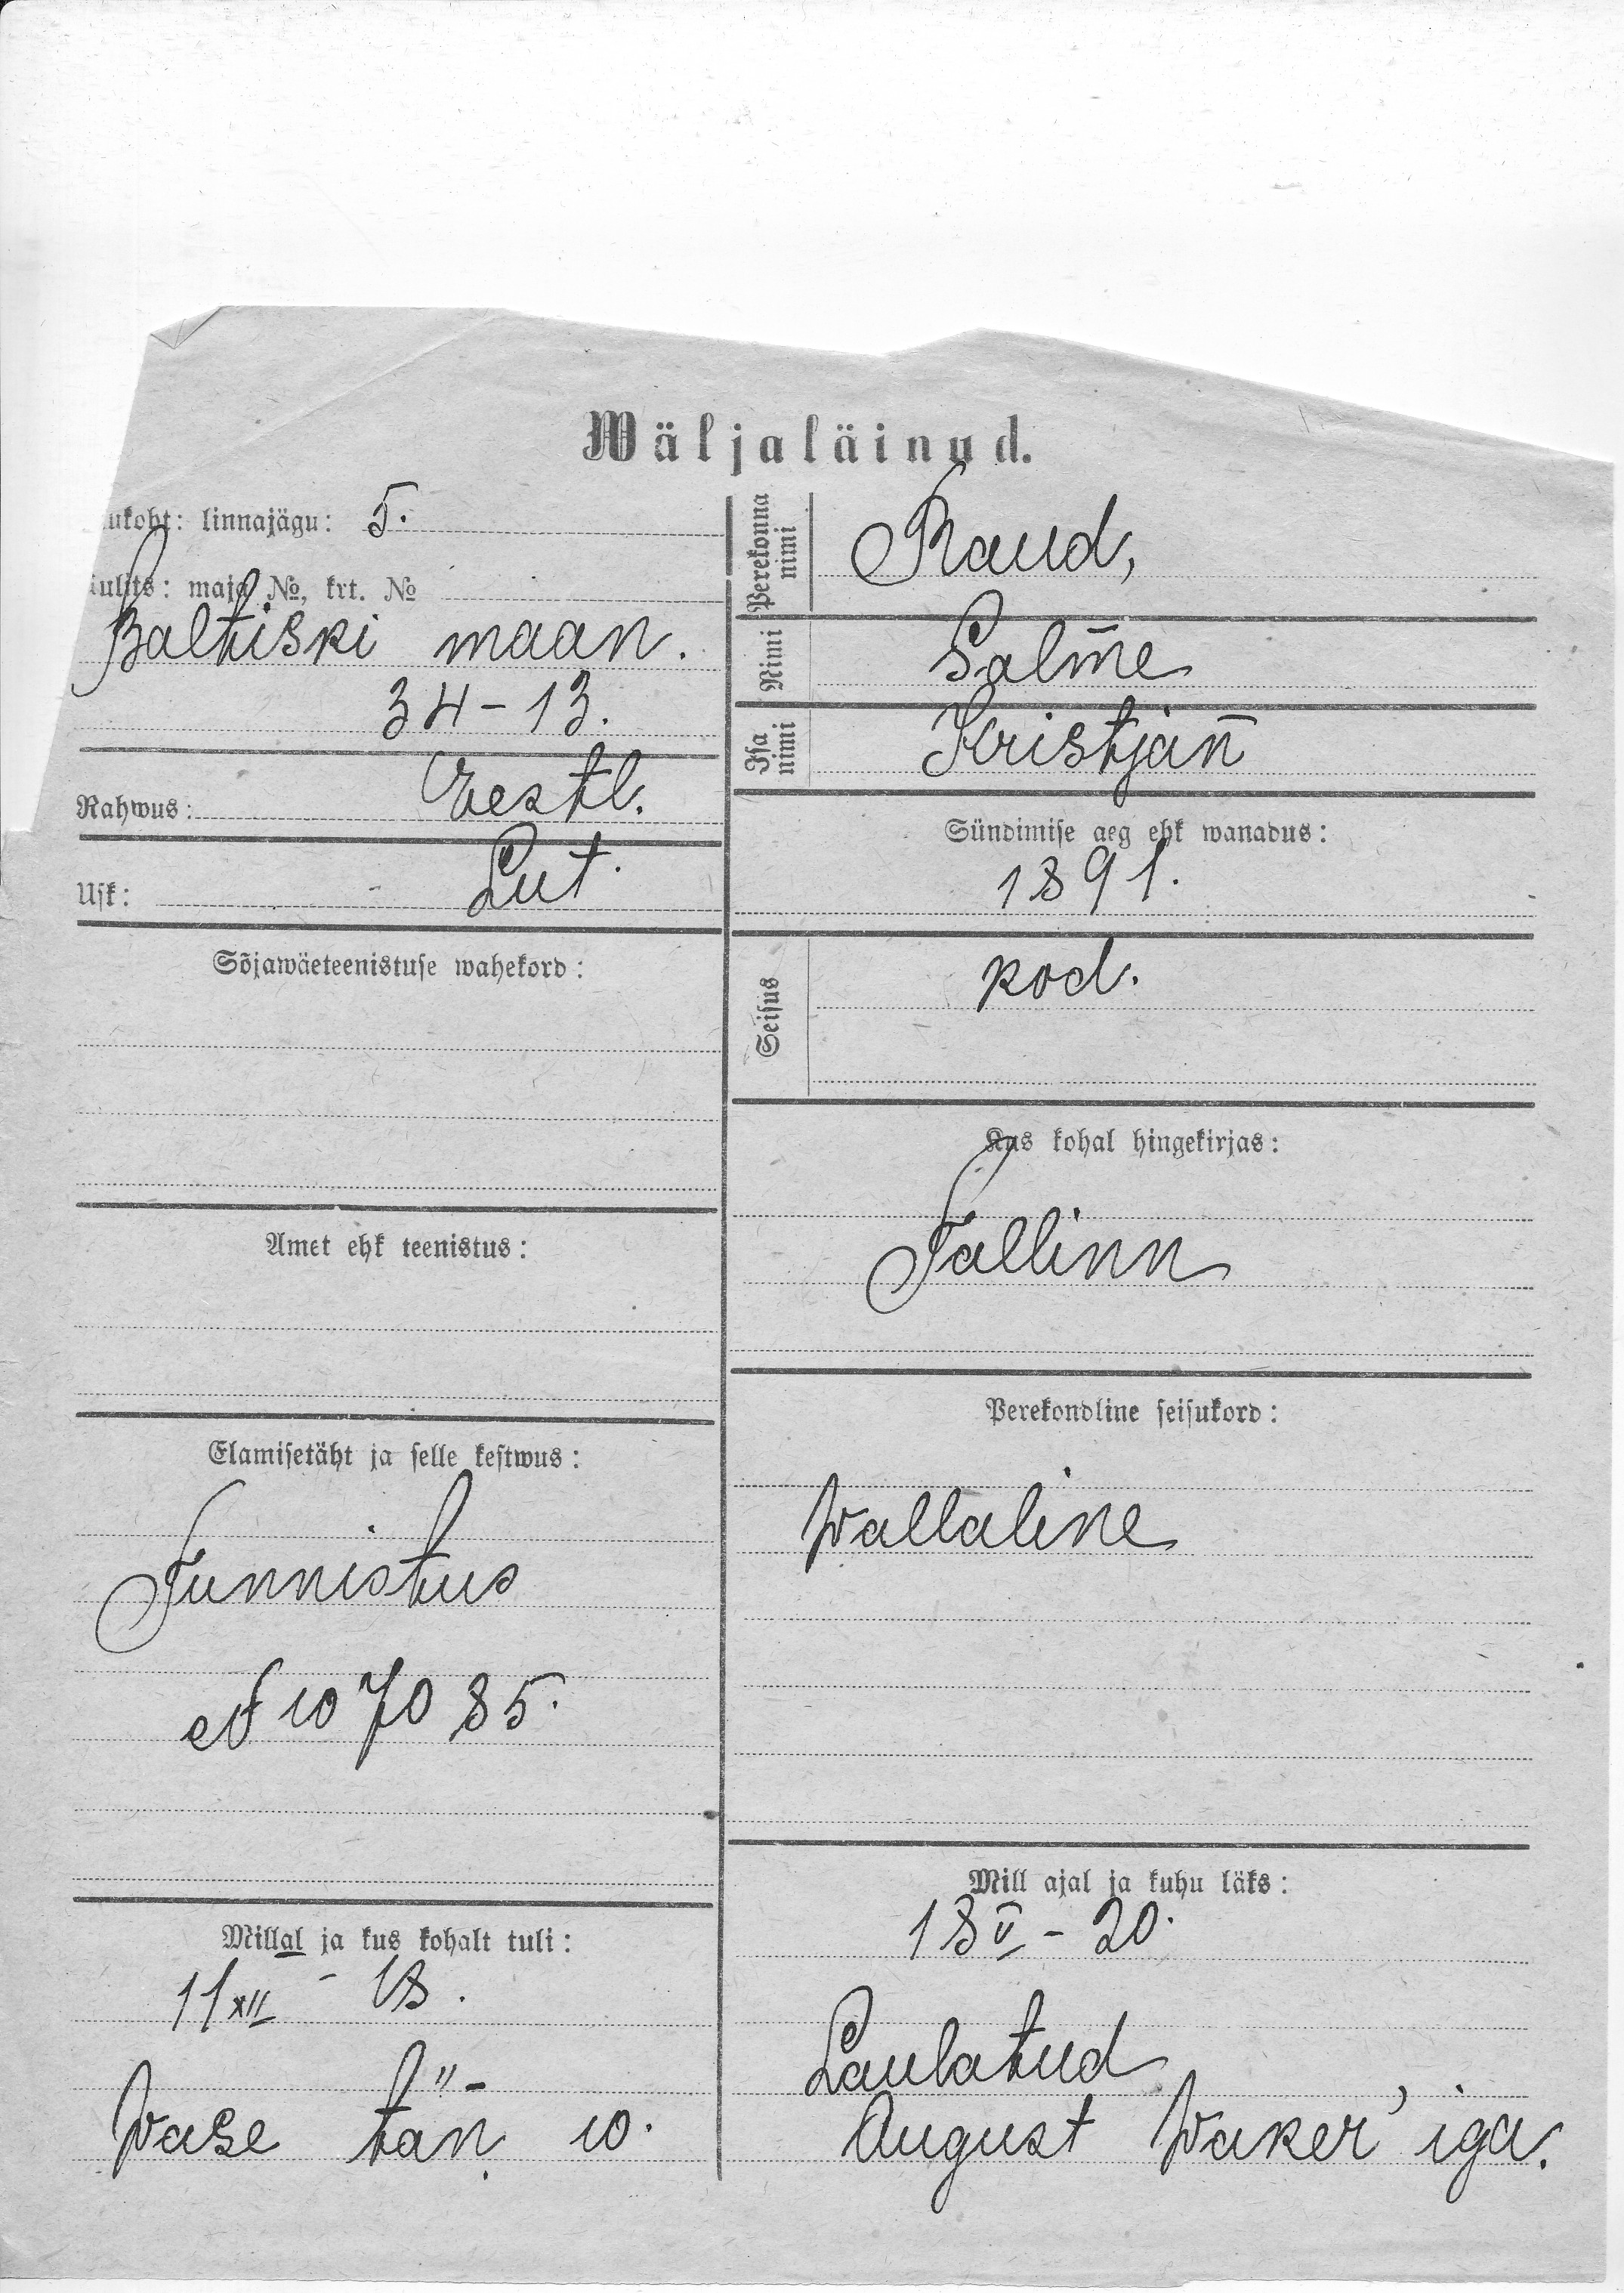 Wäljaläinud.
ukoht: linnajägu: 5.
ulits: maja №, krt. №
Baltiski maan.
34-13.
Rahwus: Eestl.
Usk: Lut.
Sõjawäeteenistuse wahekord:
Amet ehk teenistus:
Elamisetäht ja selle kestwus:
Tunnistus
№ 107085.
Millal ja kus kohalt tuli:
11 XII - 18.
Wase tän. 10.
Perekonna nimi Raud,
Nimi Salm̄e
Isa nimi Kristjan̄
Sündimise aeg ehk wanadus:
1891.
Seisus kod.
Kus kohal hingekirjas:
Tallinn
Perekondline seisukord:
Wallaline
Mill ajal ja kuhu läks:
18 V - 20.
Laulatud
August Waker' iga.